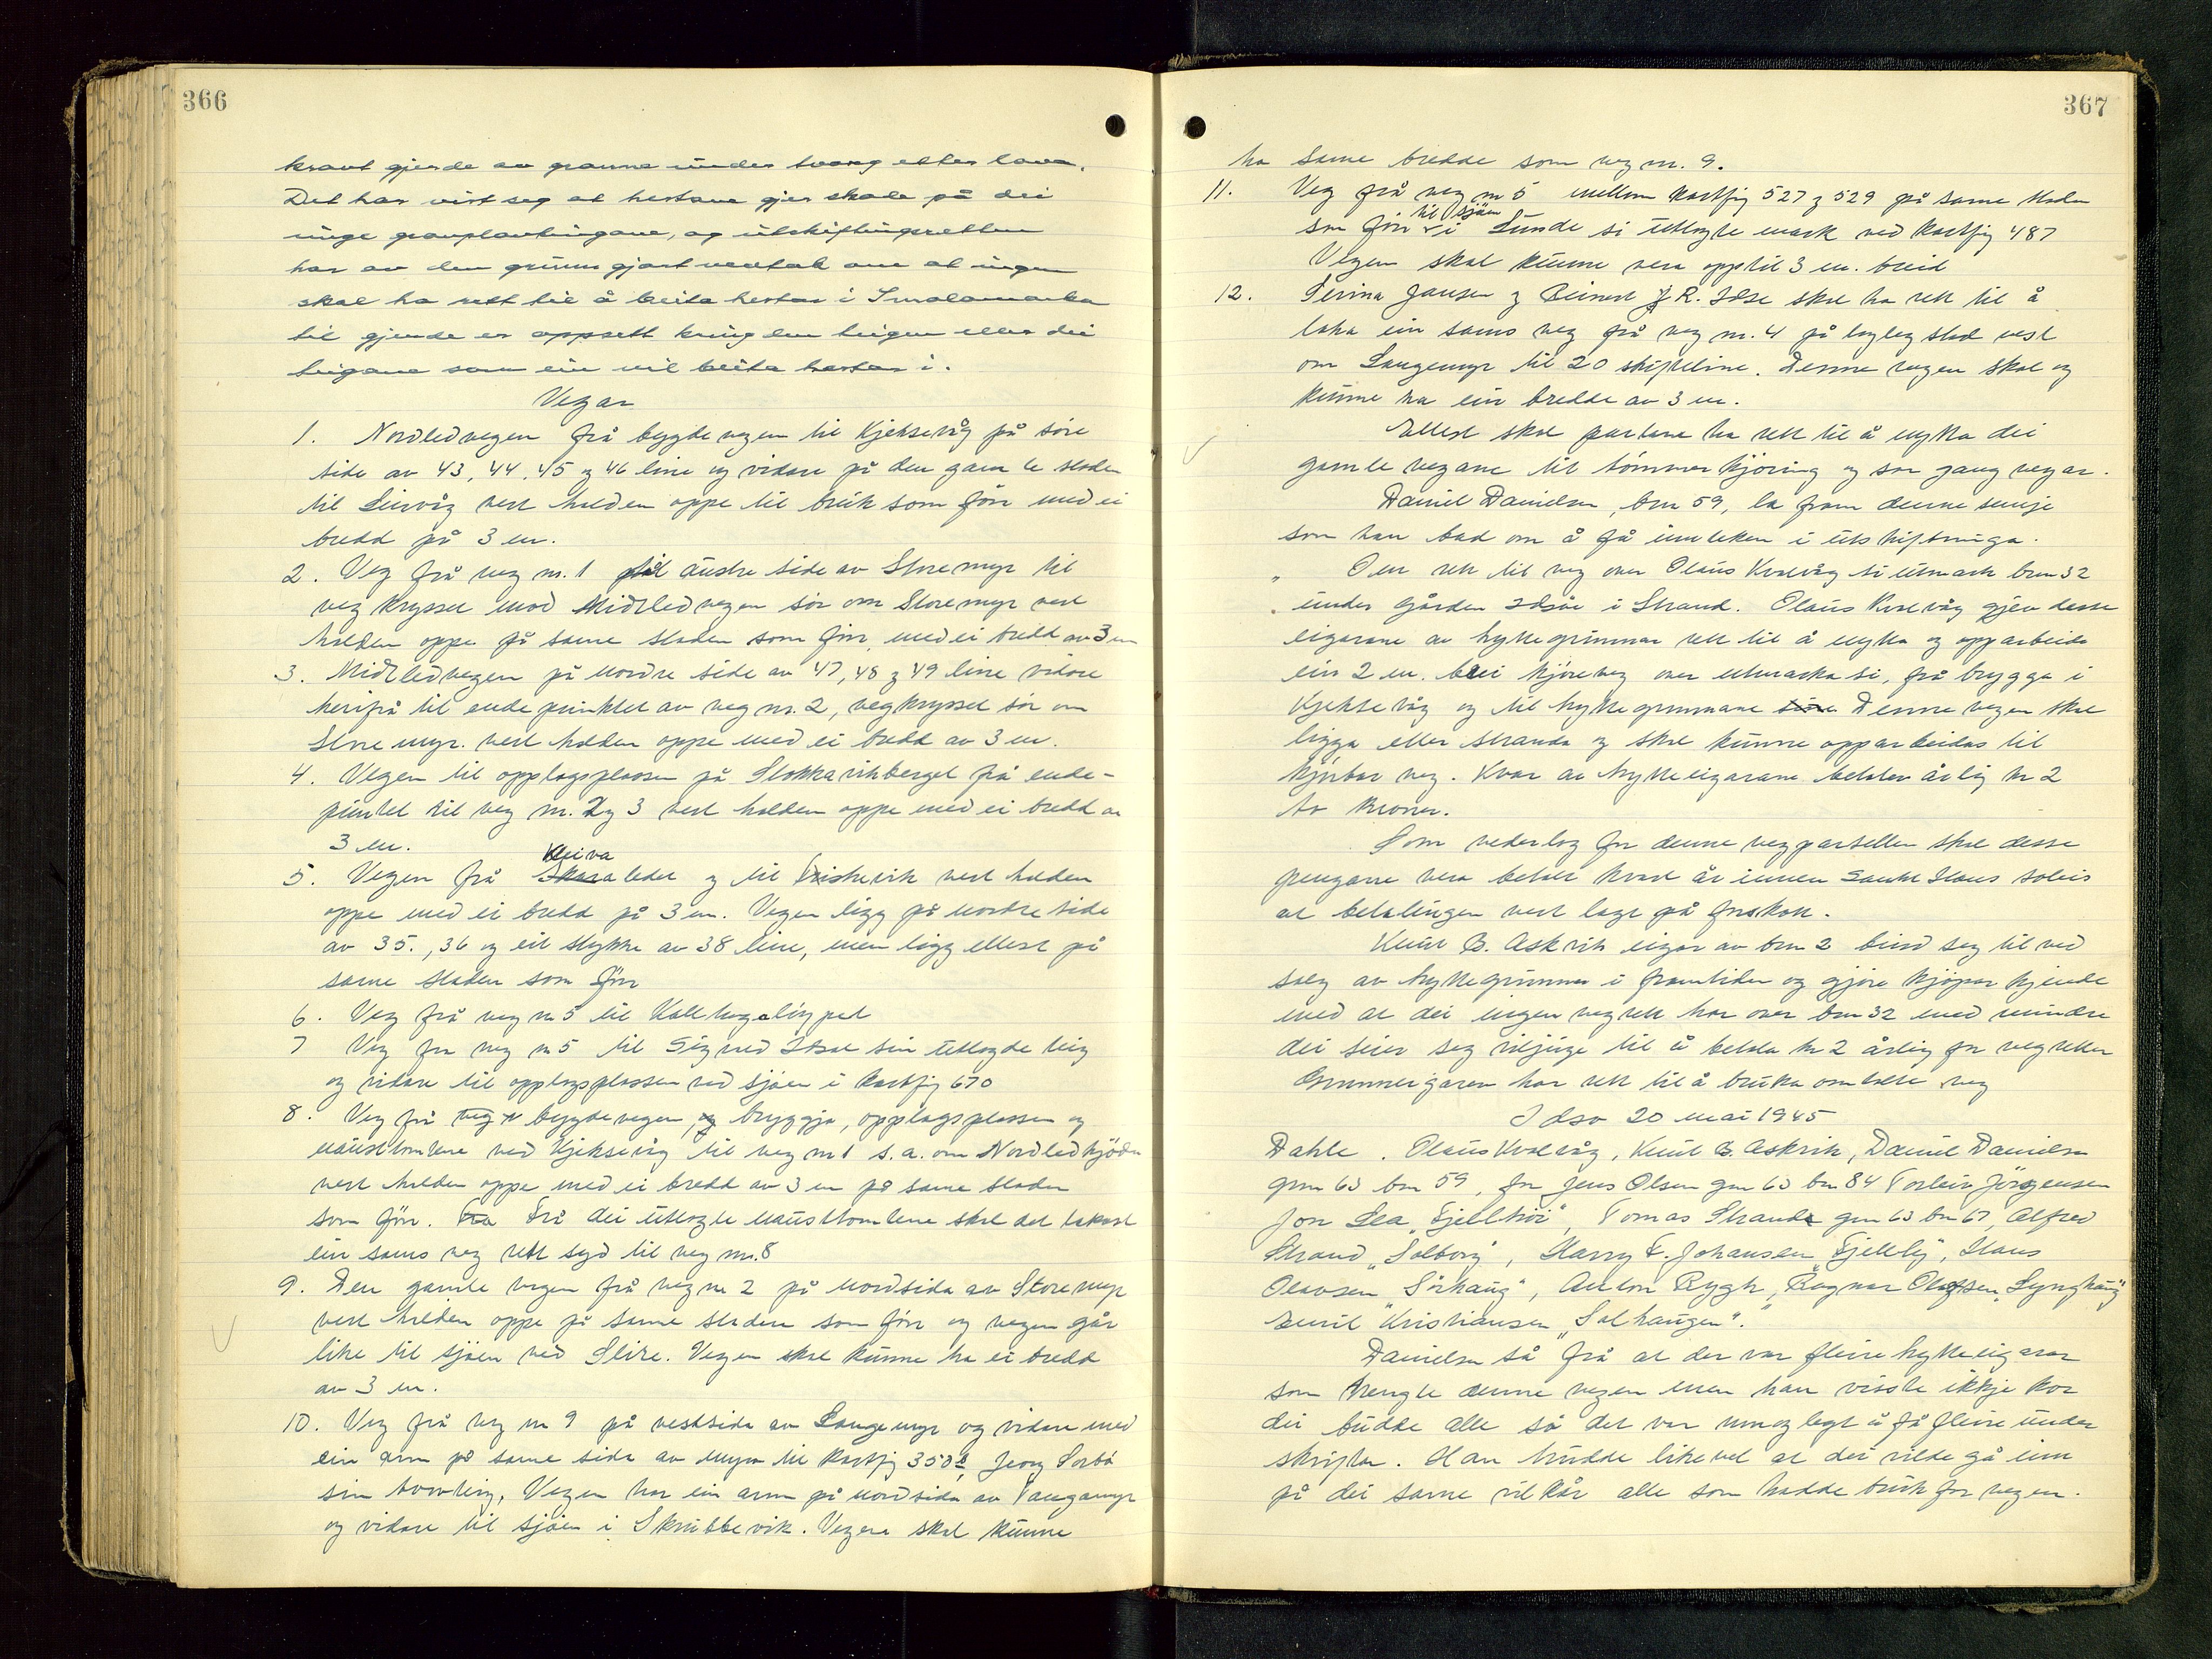 366
kravt gjerde av granne under tvang etter lova.
Det har vist seg at hestane gjer skade på dei
unge granplantingane, og utskiftingsretten
har av den grunn gjort vedtak om at ingen
skal ha rett til å beita hestar i Smalamarka
til gjerde er oppsett kring den teigen eller dei
teigane som ein vil beita hestar i.
Vegar
1. Nordledvegen frå bygdevegen til Kjeksevåg på søre
side av 43, 44, 45 og 46 line og vidare på den gamle staden
til Leirvåg vert halden oppe til bruk som før med ei
bredd på 3 m.
2. Veg frå veg nr. 1 på austre side av Storemyr til
veg krysset mod Midtledvegen sør om Storemyr vert
halden oppe på same staden som før, med ei bredd av 3 m
3. Midtledvegen på nordre side av 47, 48 og 49 line vidare
herifrå til endepunktet av veg nr. 2, vegkrysset sør om
Storemyr. vert halden oppe med ei bredd av 3 m.
4. Vegen til opplagsplassen på Stokkavikberget frå ende-
punktet til veg nr. 2 og 3 vert halden oppe med ei bredd av
3 m.
Kleiva
5. Vegen frå Skaraledet og til vert halden
oppe med ei bredd på 3 m. Vegen ligg på nordre side
av 35., 36 og eit stykke av 38 line, men ligg ellest på
same staden som før
6. Veg frå veg nr 5 til
7 Veg fra veg nr 5 til Sigved Idsøe sin utlagde teig
og vidare til opplagsplassen ved sjøen i kartfig 670
8. Veg frå veg n bygdevegen, og bryggja, opplagsplassen og
nausttomtene ved Kjeksevåg til veg nr 1 s.a. om Nordledkjödn
vert halden oppe med ei bredd av 3 m på same staden
som før. Fra Frå dei utlagte nausttomtene skal det takast
ein sams veg rett syd til veg nr. 8
9. Den gamle vegen frå veg nr 2 på nordsida av Storemyr
vert halden oppe på same staden som før og vegen går
like til sjøen ved Slire. Vegen skal kunne ha ei bredd
av 3 m.
10. Veg frå veg nr 9 på vestsida av Langemyr og vidare med
ein arm på same sida av myra til kartfig 350, Georg Sørbö
sin torvteig, Vegen har ein arm på nordsida av Vangamyr
og vidare til sjøen i Skrubbevik. Vegen skal kunne
367
ha same bredde som veg nr. 9.
11. Veg frå veg nr 5 mellom kartfig 527 og 529 på same staden
til sjøen
som før i Sunde si utlagte mark ved kartfig 487
Vegen skal kunne vera opptil 3 m. breid
12. Serina Jansen og Reinert J R. Idse skal ha rett til å
taka ein sams veg frå veg nr. 4 på lagleg stad vest
om Langemyr til 20 skifteline. Denne vegen skal og
kunne ha ein bredde av 3 m.
Ellest skal partane ha rett til å nytta dei
gamle vegane til tømmerkjøring og som gangvegar.
Daniel Danielsen, bnr 59, la fram denne semje
som han bad om å få innteken i utskiftninga.
„ Om rett til veg over Olaus Kvalvåg si utmark bnr 32
under gården Idsøe i Strand. Olaus Kvalvåg gjev desse
eigarane av hyttegrunnar rett til å nytta og opparbeida
ein 2 m. brei kjøreveg over utmarka si, frå brygga i
Kjeksevåg og til hyttegrunnane sine Denne vegen skal
ligga etter stranda og skal kunne opparbeidas til
kjörbar veg. Kvar av hytteeigarane betaler årlig kr 2
to kroner.
Som vederlag for denne vegparsellen skal desse
pengane vera betalt kvart år innen Sankt Hans soleis
at betalingen vert lagt på forskott.
Knut B. Askvik eigar av bnr 2 bind seg til ved
salg av hyttegrunnar i framtiden og gjøre kjøpar kjende
med at dei ingen vegrett har over bnr 32 med mindre
dei seier seg viljuge til å betala kr 2 årlig for vegretten
Grunneigaren har rett til å bruka omtalte veg
Idsø 20 mai 1945
Dahle. Olaus Kvalvåg, Knut B. Askvik, Daniel Danielsen
gnr 63 bnr 59, for Jens Olsen gnr 63 bnr 84 Torleiv Jörgensen
Jon Lea „Fjellhöi", Tomas Strand gnr 63 bnr 67, Alfred
Strand „Solborg", Harry F. Johansen „Fjelley", Hans
Olavsen „Sörhaug", Anton Rygh, Ragnar Olafsen „Lynghaug"
Emil Kristiansen „Solhaugen".
Danielsen sa frå at der var fleire hytteeigarar
som trengte denne vegen men han visste ikkje kor
dei budde alle så det var umoglegt å få fleire under
skrifter. Han trudde likevel at dei vilde gå inn
på dei same vilkår alle som hadde bruk for vegen.